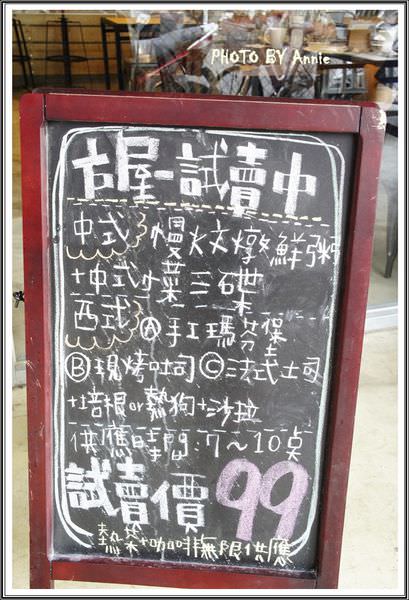 PHOTO BY Annie
古屋-試賣中
中式 慢火燉鮮粥
+中式小菜三碟
西式 Ⓐ手工瑪芬堡
Ⓑ現烤吐司Ⓒ法式土司
+培根or熱狗+沙拉
供應時間:7～10點
試賣價99
熱茶+咖啡無限供應